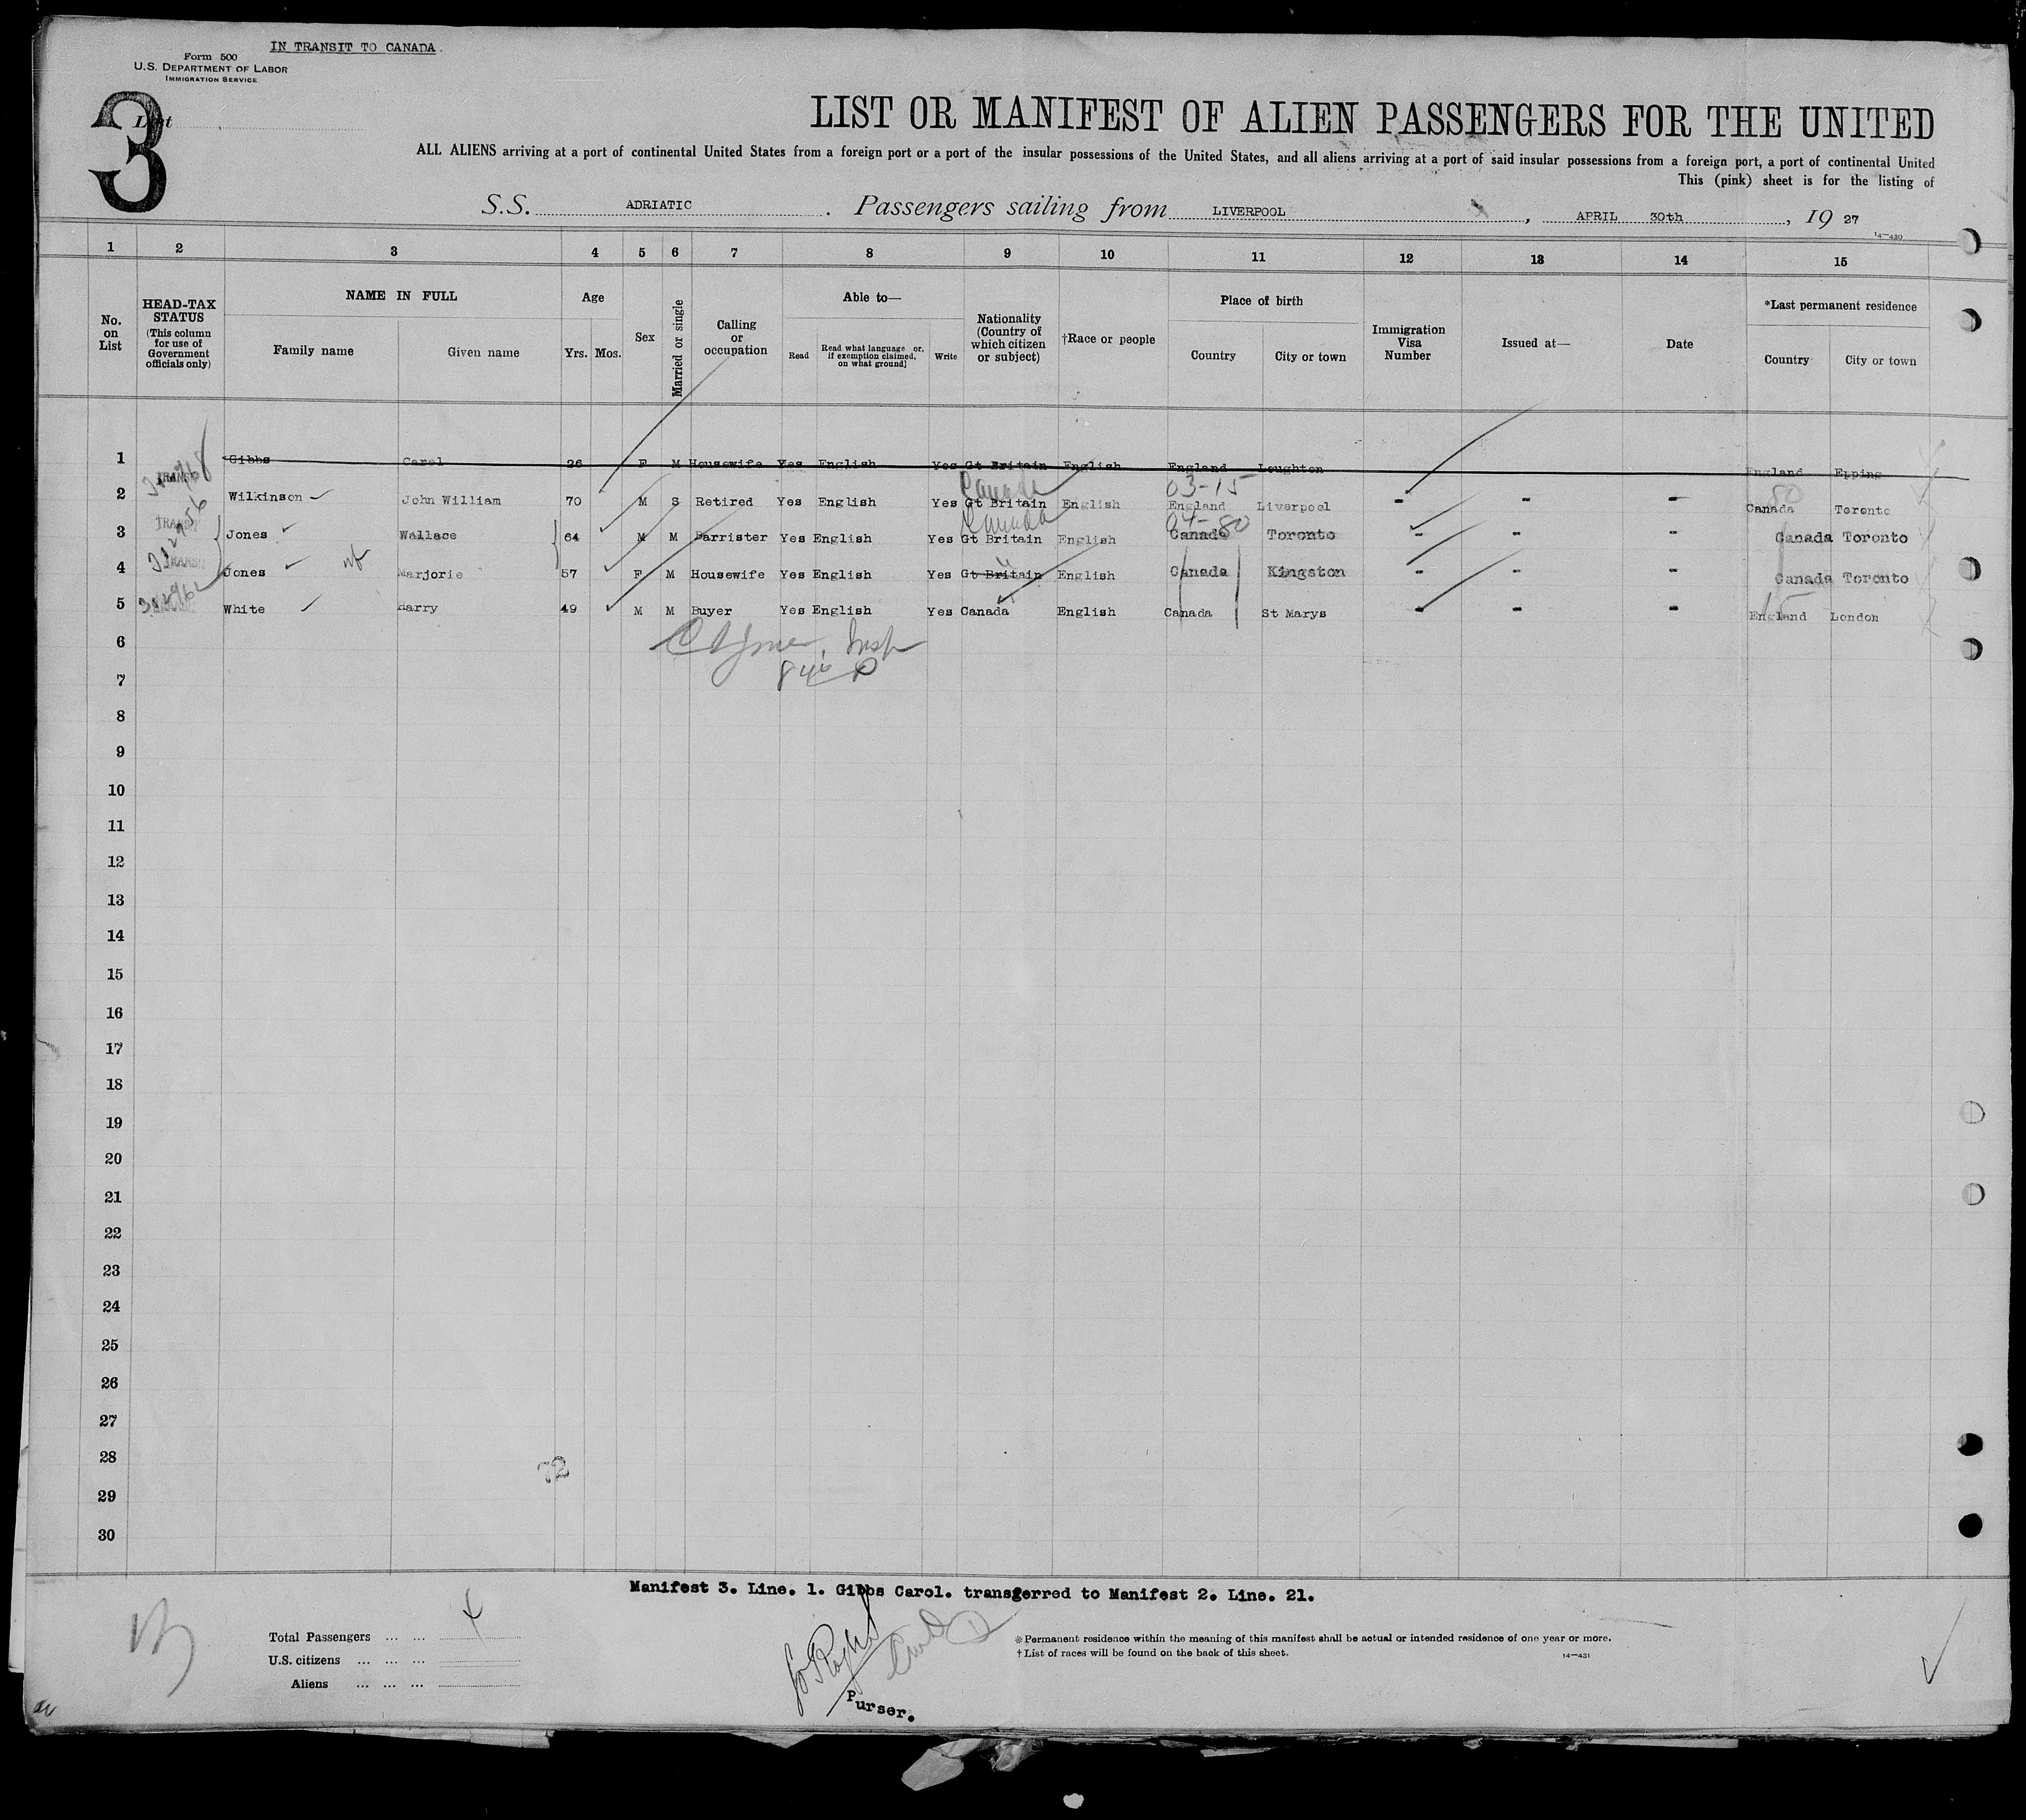 IN TRANSIT TO CANADA.
Form 500
U.S. DEPARTMENT OF LABOR
IMMIGRATION SERVICE
3
List
LIST OR MANIFEST OF ALIEN PASSENGERS FOR THE UNITED
ALL ALIENS arriving at a port of continental United States from a foreign port or a port of the insular possessions of the United States, and all aliens arriving at a port of said insular possessions from a foreign port, a port of continental United
This (pink) sheet is for the listing of
S.S. ADRIATIC. Passengers sailing from LIVERPOOL, APRIL 30th, 1927
14—430
1 2 3 4 5 6 7 8 9 10 11 12 13 14 15
No. on List
HEAD-TAX STATUS (This column for use of Government officials only)
NAME IN FULL
Family name
Given name
Age
Yrs. Mos.
Sex
Married or single
Calling or occupation
Able to—
Read
Read what language or, if exemption claimed, on what ground]
Write
Nationality (Country of which citizen or subject)
†Race or people
Place of birth
Country
City or town
Immigration Visa Number
Issued at—
Date
*Last permanent residence
Country
City or town
1 Gibbs Carol 26 F M Housewife Yes English Yes Gt Britain English England Loughton England Epping
Canada 03-15 80
2 Wilkinson John William 70 M S Retired Yes English Yes Gt Britain English England Liverpool - - - Canada Toronto
Canada 04-80
3 TRANSIT Jones Wallace 64 M M Barrister Yes English Yes Gt Britain English Canada Toronto - - - Canada Toronto
4 TRANSIT Jones wf Marjorie 57 F M Housewife Yes English Yes Gt Britain English Canada Kingston - - - Canada Toronto
15
5 White Harry 49 M M Buyer Yes English Yes Canada English Canada St Marys - - - England London
6
7
8
9
10
11
12
13
14
15
16
17
18
19
20
21
22
23
24
25
26
27
28
29
30
72
Manifest 3. Line. 1. Gibbs Carol. transferred to Manifest 2. Line. 21.
Total Passengers ... ... 4
U.S. citizens ... ... ...
Aliens ... ... ...
Purser.
*Permanent residence within the meaning of this manifest shall be actual or intended residence of one year or more.
†List of races will be found on the back of this sheet.
14—431